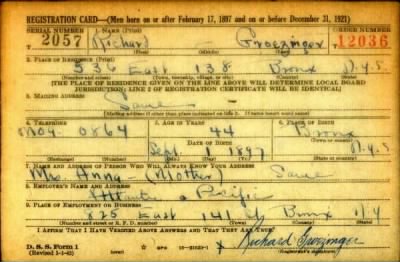 REGISTRATION CARD—(Men born on or after February 17, 1897 and on or before December 31, 1921)
SERIAL NUMBER 1. NAME (Print) ORDER NUMBER
2057 Richard - Groezinger 12036
2. PLACE OF RESIDENCE (Print)
536 East 138 Bronx N.Y.S
(Number and street) (Town, township, village, or city) (County) (State)
[THE PLACE OF RESIDENCE GIVEN ON THE LINE ABOVE WILL DETERMINE LOCAL BOARD
JURISDICTION; LINE 2 OF REGISTRATION CERTIFICATE WILL BE IDENTICAL]
3. MAILING ADDRESS
Same
[Mailing address if other than place indicated on line 2. If same insert word same]
4. TELEPHONE 5. AGE IN YEARS 6. PLACE OF BIRTH
0864 44 Bronx
DATE OF BIRTH
Sept. 1 1897 N.Y.S
7. NAME AND ADDRESS OF PERSON WHO WILL ALWAYS KNOW YOUR ADDRESS
Mrs. Anna - (Mother) Same
8. EMPLOYER'S NAME AND ADDRESS
Atlantic & Pacific
9. PLACE OF EMPLOYMENT OR BUSINESS
825 East 141 Bronx N.Y
(Number and street or R. F. D. number) (Town) (County) (State)
I AFFIRM THAT I HAVE VERIFIED ABOVE ANSWERS AND THAT THEY ARE TRUE.
D. S. S. Form 1 x Richard Groezinger